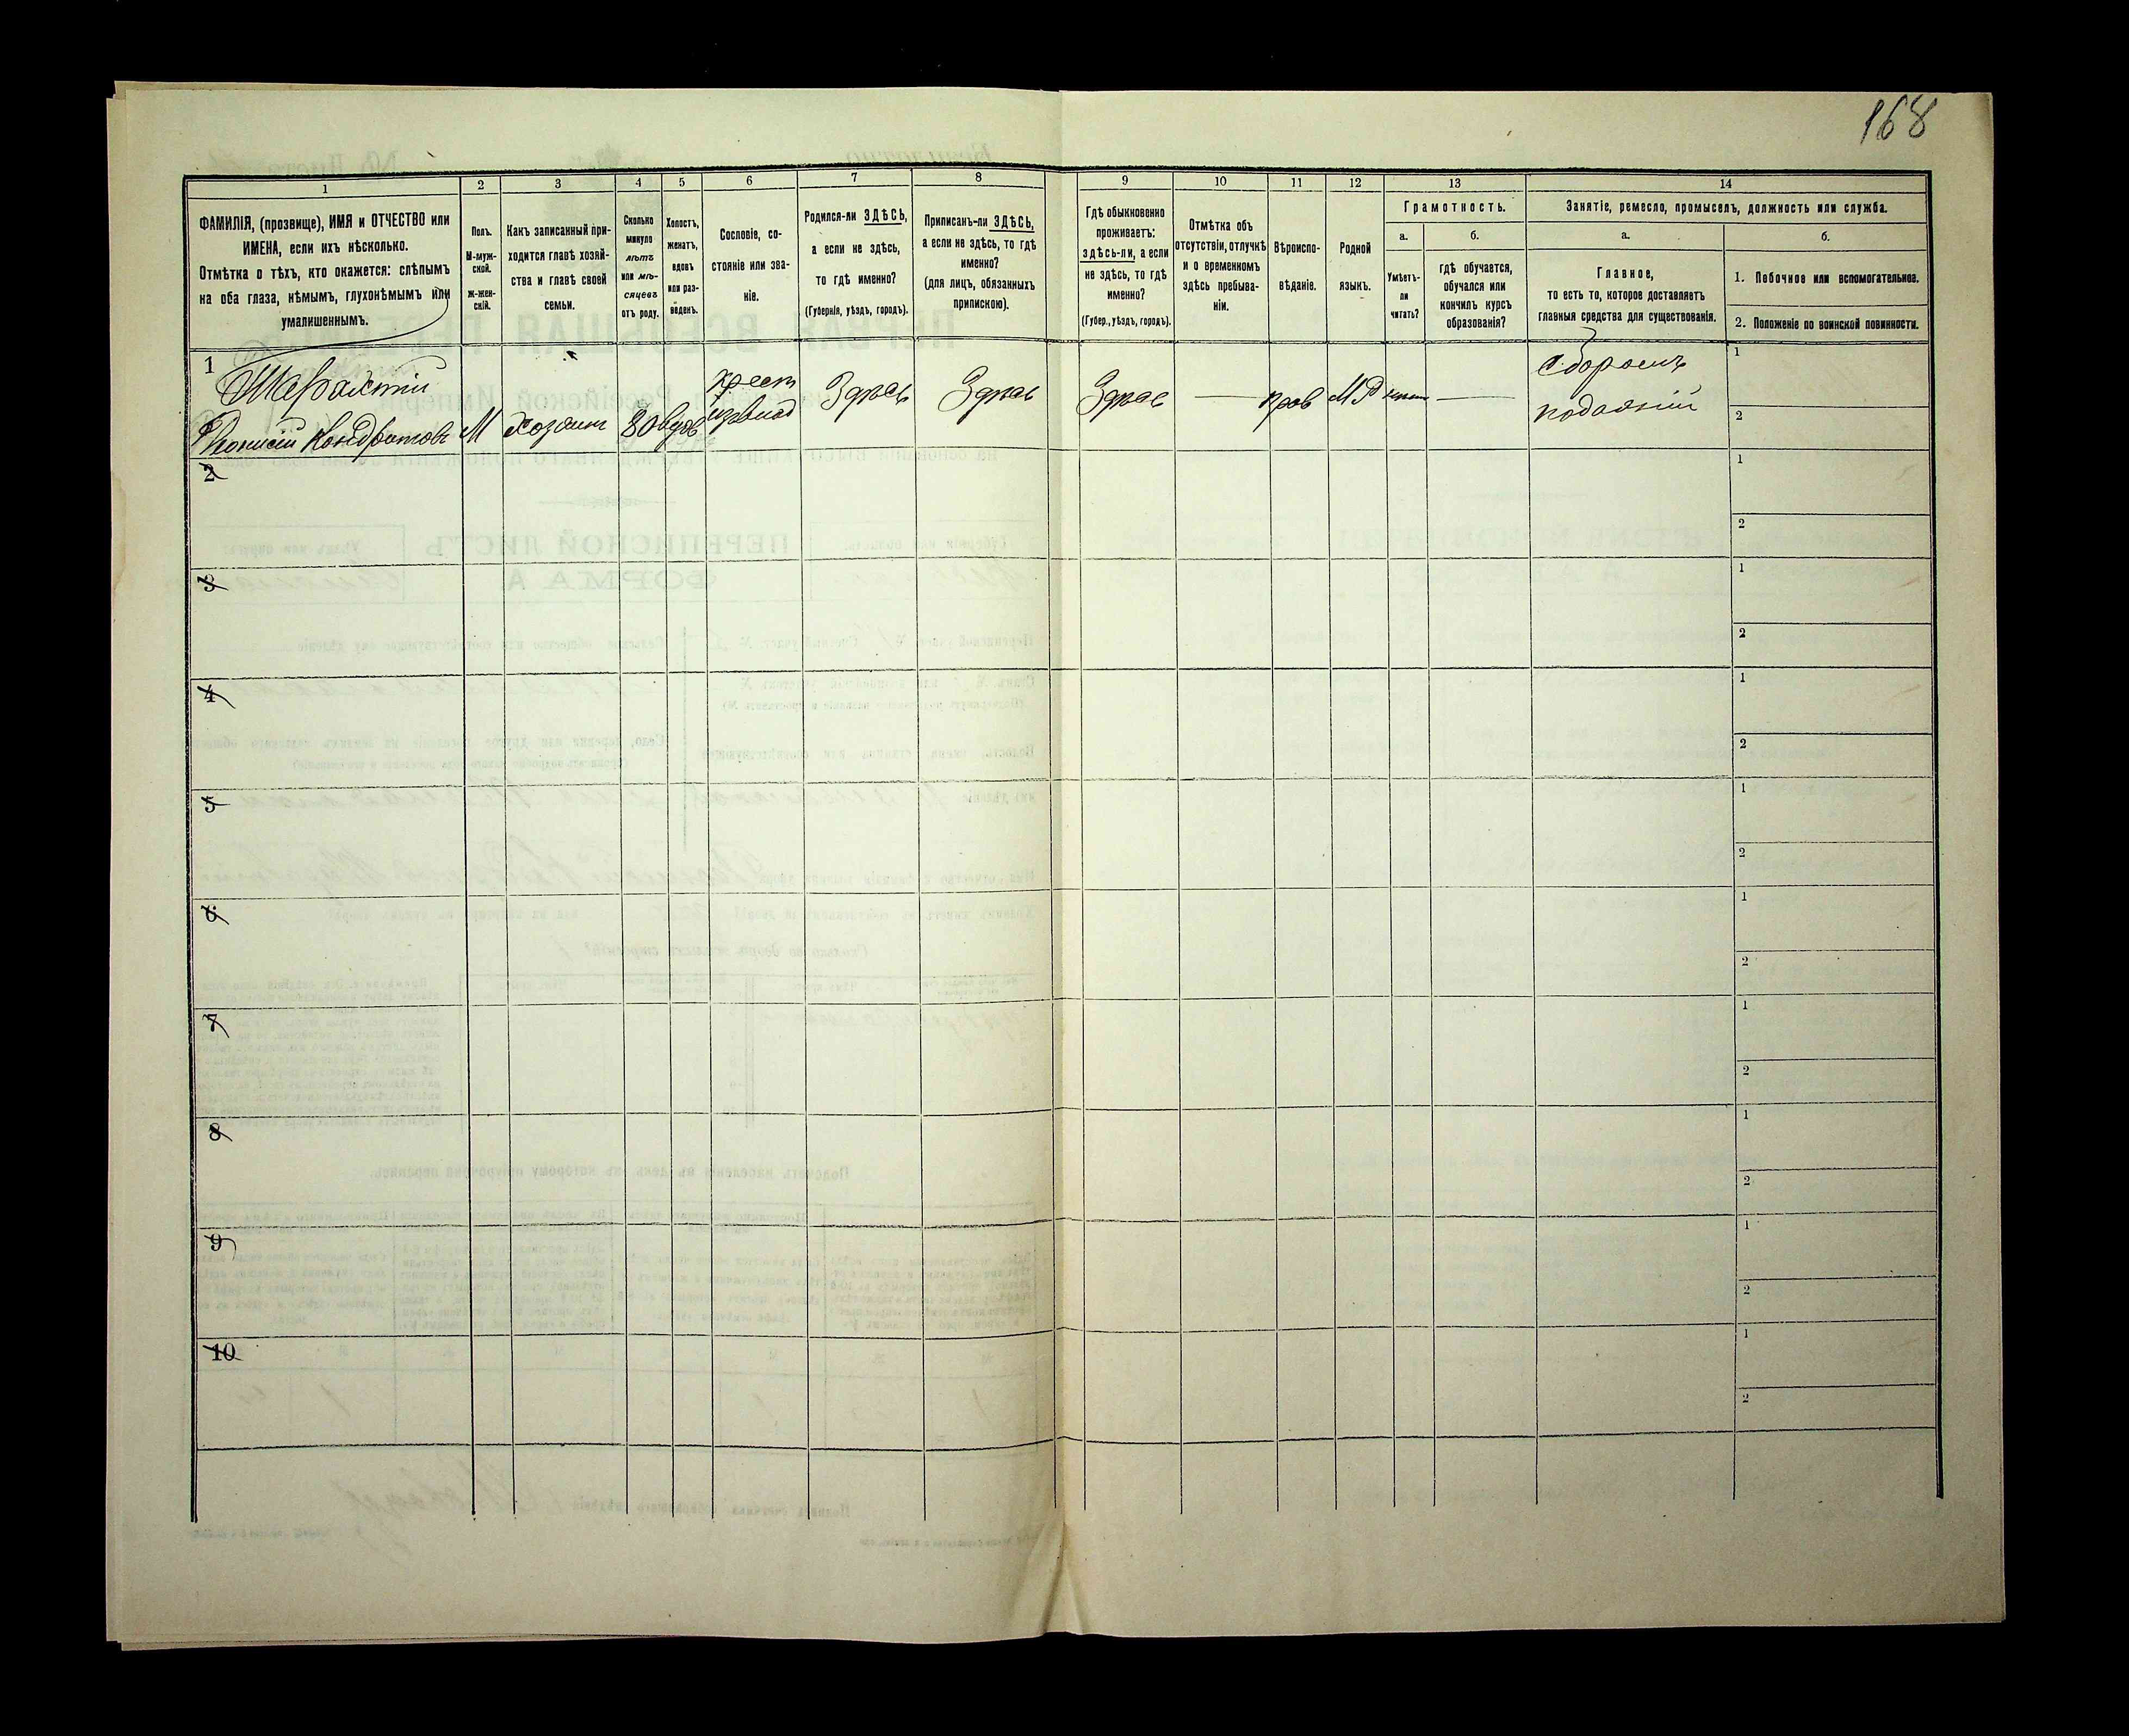 168
1 2 3 4 5 6 7 8 9 10 11 12 13 14
ФАМИЛІЯ, (прозвище), ИМЯ и ОТЧЕСТВО или
ИМЕНА, если ихъ нѣсколько.
Отмѣтка о тѣхъ, кто окажется: слѣпымъ
на оба глаза, нѣмымъ, глухонѣмымъ или
умалишеннымъ.
Полъ.
М-муж-
ской.
ж-жен-
скій.
Какъ записанный при-
ходится главѣ хозяй-
ства и главѣ своей
семьи.
Сколько
минуло
лѣтъ
или мѣ-
сяцевъ
отъ роду.
Холостъ,
женатъ,
вдовъ
или раз-
веденъ.
Сословіе, со-
стояніе или зва-
ніе.
Родился-ли ЗДѢСЬ,
а если не здѣсь,
то гдѣ именно?
(Губернія, уѣздъ, городъ).
Приписанъ-ли ЗДѢСЬ,
а если не здѣсь, то гдѣ
именно?
(для лицъ, обязанныхъ
припискою).
Гдѣ обыкновенно
проживаетъ:
здѣсь-ли, а если
не здѣсь, то гдѣ
именно?
(Губер., уѣздъ, городъ).
Отмѣтка объ
отсутствіи, отлучкѣ
и о временномъ
здѣсь пребыва-
ніи.
Вѣроиспо-
вѣданіе.
Родной
языкъ.
Грамотность.
а.
Умѣетъ-
ли
читать?
б.
гдѣ обучается,
обучался или
кончилъ курсъ
образованія?
Занятіе, ремесло, промыселъ, должность или служба.
а.
Главное,
то есть то, которое доставляетъ
главныя средства для существованія.
б.
1. Побочное или вспомогательное.
2. Положеніе по воинской повинности.
1
Кондратовъ М Хозяинъ 80 вдов
крест
Здѣсь Здѣсь Здѣсь — прав М Р —
сборомъ
подаяній
1
2
2
1
2
3
1
2
4
1
2
5
1
2
6
1
2
7
1
2
8
1
2
9
1
2
10
1
2